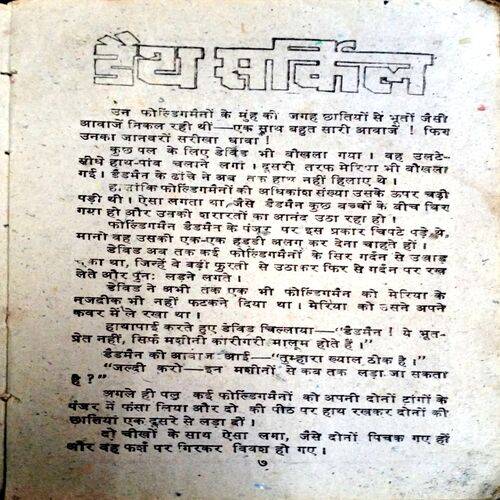 डैथ सर्किल
उन फोल्डिंगमैनों के मुंह की जगह छातियों से भूतों जैसी
आवाजें निकल रही थीं—एक साथ बहुत सारी आवाजें ! फिर
उनका जानवरों सरीखा धावा !
कुछ पल के लिए डेविड भी बौखला गया । वह उलटे-
सीधे हाथ-पांव चलाने लगा । दूसरी तरफ मेरिया भी बौखला
गई । डैडमैन के ढांचे ने अब तक हाथ नहीं हिलाए थे ।
हालांकि फोल्डिंगमैनों की अधिकांश संख्या उसके ऊपर चढ़ी
पड़ी थी । ऐसा लगता था, जैसे डैडमैन कुछ बच्चों के बीच घिर
गया हो और उनकी शरारतों का आनंद उठा रहा हो !
फोल्डिंगमैन डैडमैन के पंजर पर इस प्रकार चिपटे पड़े थे,
मानो वह उसकी एक-एक हड्डी अलग कर देना चाहते हों ।
डेविड अब तक कई फोल्डिंगमैनों के सिर गर्दन से उखाड़
चुका था, जिन्हें वे बड़ी फुरती से उठाकर फिर से गर्दन पर रख
लेते और पुनः लड़ने लगते ।
डेविड ने अभी तक एक भी फोल्डिंगमैन को मेरिया के
नजदीक भी नहीं फटकने दिया था । मेरिया को उसने अपने
कवर में ले रखा था ।
हाथापाई करते हुए डेविड चिल्लाया—“डैडमैन ! ये भूत-
प्रेत नहीं, सिर्फ मशीनी कारीगरी मालूम होते हैं ।”
डैडमैन की आवाज आई—“तुम्हारा ख्याल ठीक है ।”
“जल्दी करो—इन मशीनों से कब तक लड़ा जा सकता
है ?”
अगले ही पल कई फोल्डिंगमैनों को अपनी दोनों टांगों के
पंजर में फंसा लिया और दो की पीठ पर हाथ रखकर दोनों की
छातियां एक दूसरे से लड़ा दीं ।
दो चीखों के साथ ऐसा लगा, जैसे दोनों पिचक गए हों
और वह फर्श पर गिरकर विवश हो गए ।
७